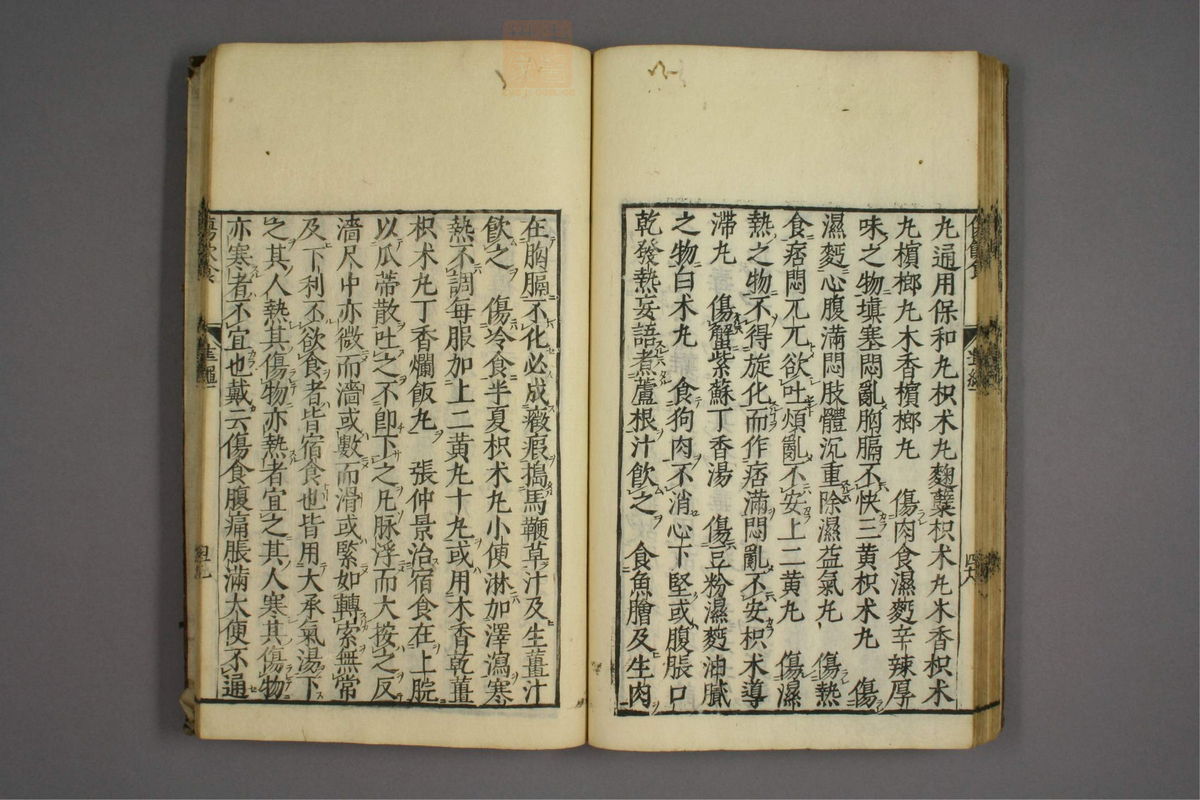 丸通用保和丸枳术丸麯蘗枳术丸木香枳术
丸檳榔丸木香檳榔丸　傷肉食濕麪辛辣厚
味之物填塞悶亂胸膈不快三黄枳术丸　傷
濕麪心腹滿悶肢體沉重除濕益氣丸　傷熱
食痞悶兀兀欲吐煩亂不安上二黄丸　傷濕
熱之物不得旋化而作痞滿悶亂不安枳术導
滯丸　傷蟹紫蘇丁香湯　傷豆粉濕麪油膩
之物白术丸　食狗肉不消心下堅或腹脹口
乾發熱妄語煮蘆根汁飲之　食魚膾及生肉
在胸膈不化必成癥瘕搗馬鞭草汁及生薑汁
飲之　傷冷食半夏枳术丸小便淋加澤瀉寒
熱不調每服加上二黄丸十丸或用木香乾薑
枳术丸丁香爛飯丸　張仲景治宿食在上脘
以瓜蒂散吐之不卽下之凡脉浮而大按之反
濇尺中亦微而濇或數而滑或緊如轉索無常
及下利不欲食者皆宿食也皆用大承氣湯下
之其人熱其傷物亦熱者宜之其人寒其傷物
亦寒者不宜也戴云傷食腹痛脹滿大便不通